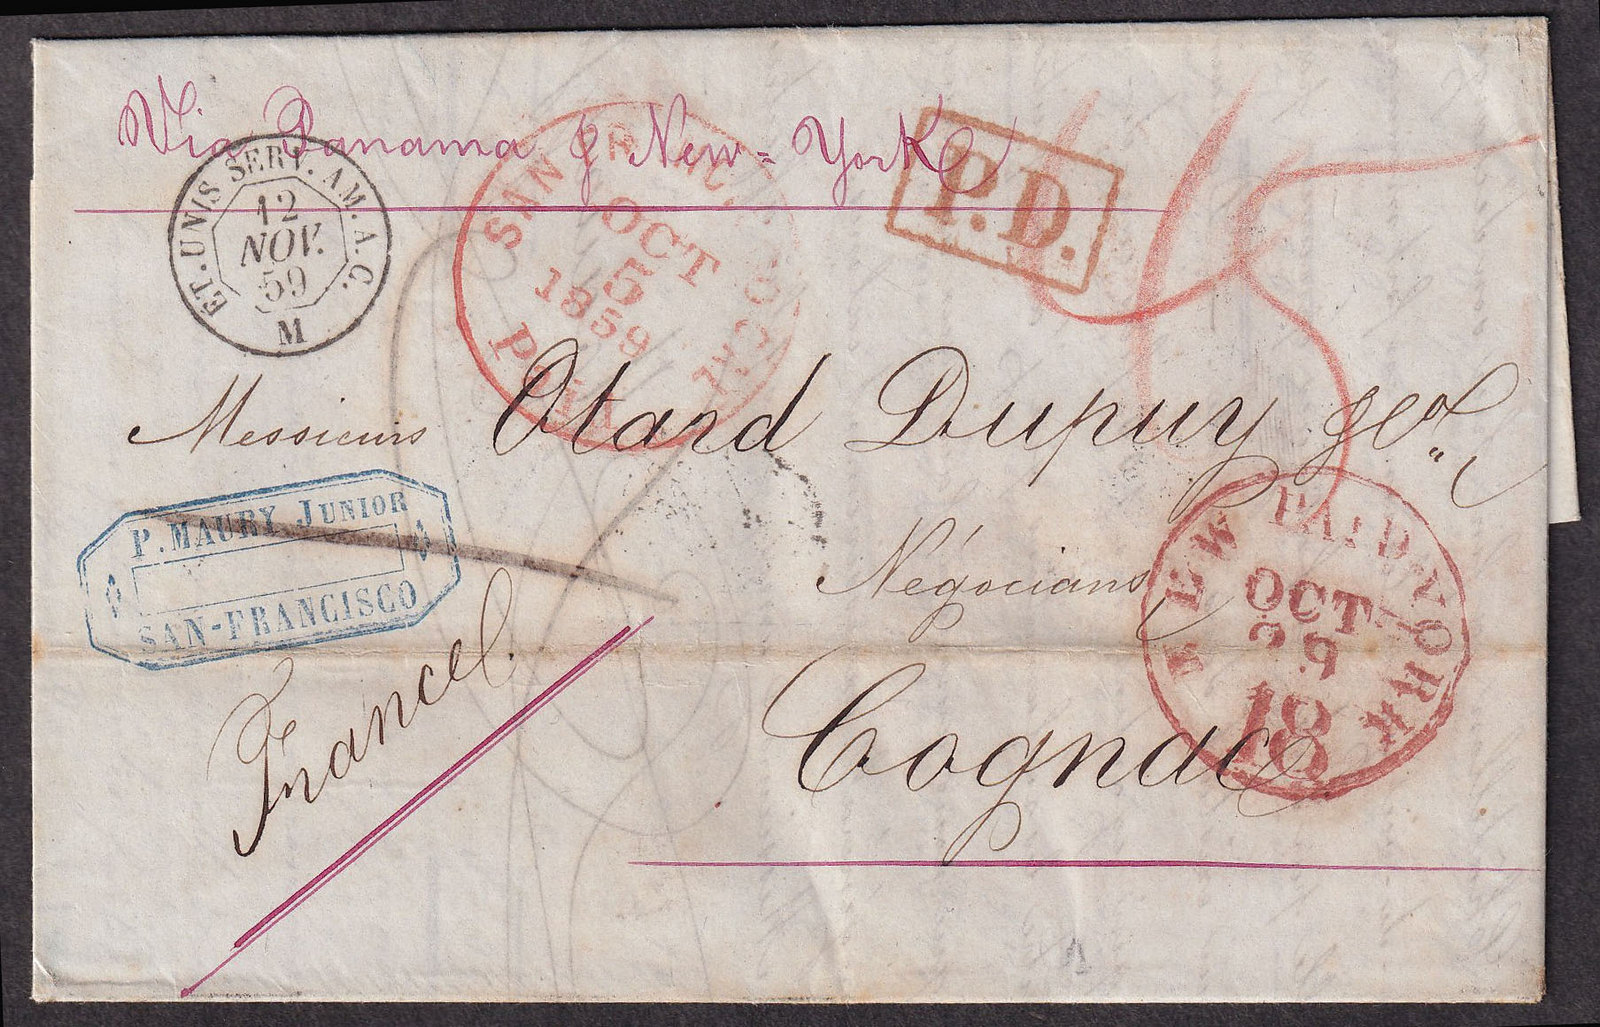 Via Panama & New-York
ET. UNIS SERV. AM. A. C.
12
NOV.
59
M
SAN FRANCISCO CAL
OCT
5
1859
PAID
P.D.
15
Messieurs Otard Dupuy & Co.
P. MAURY JUNIOR
SAN-FRANCISCO
Négocians
NEW PAID YORK
OCT
29
18
France
Cognac